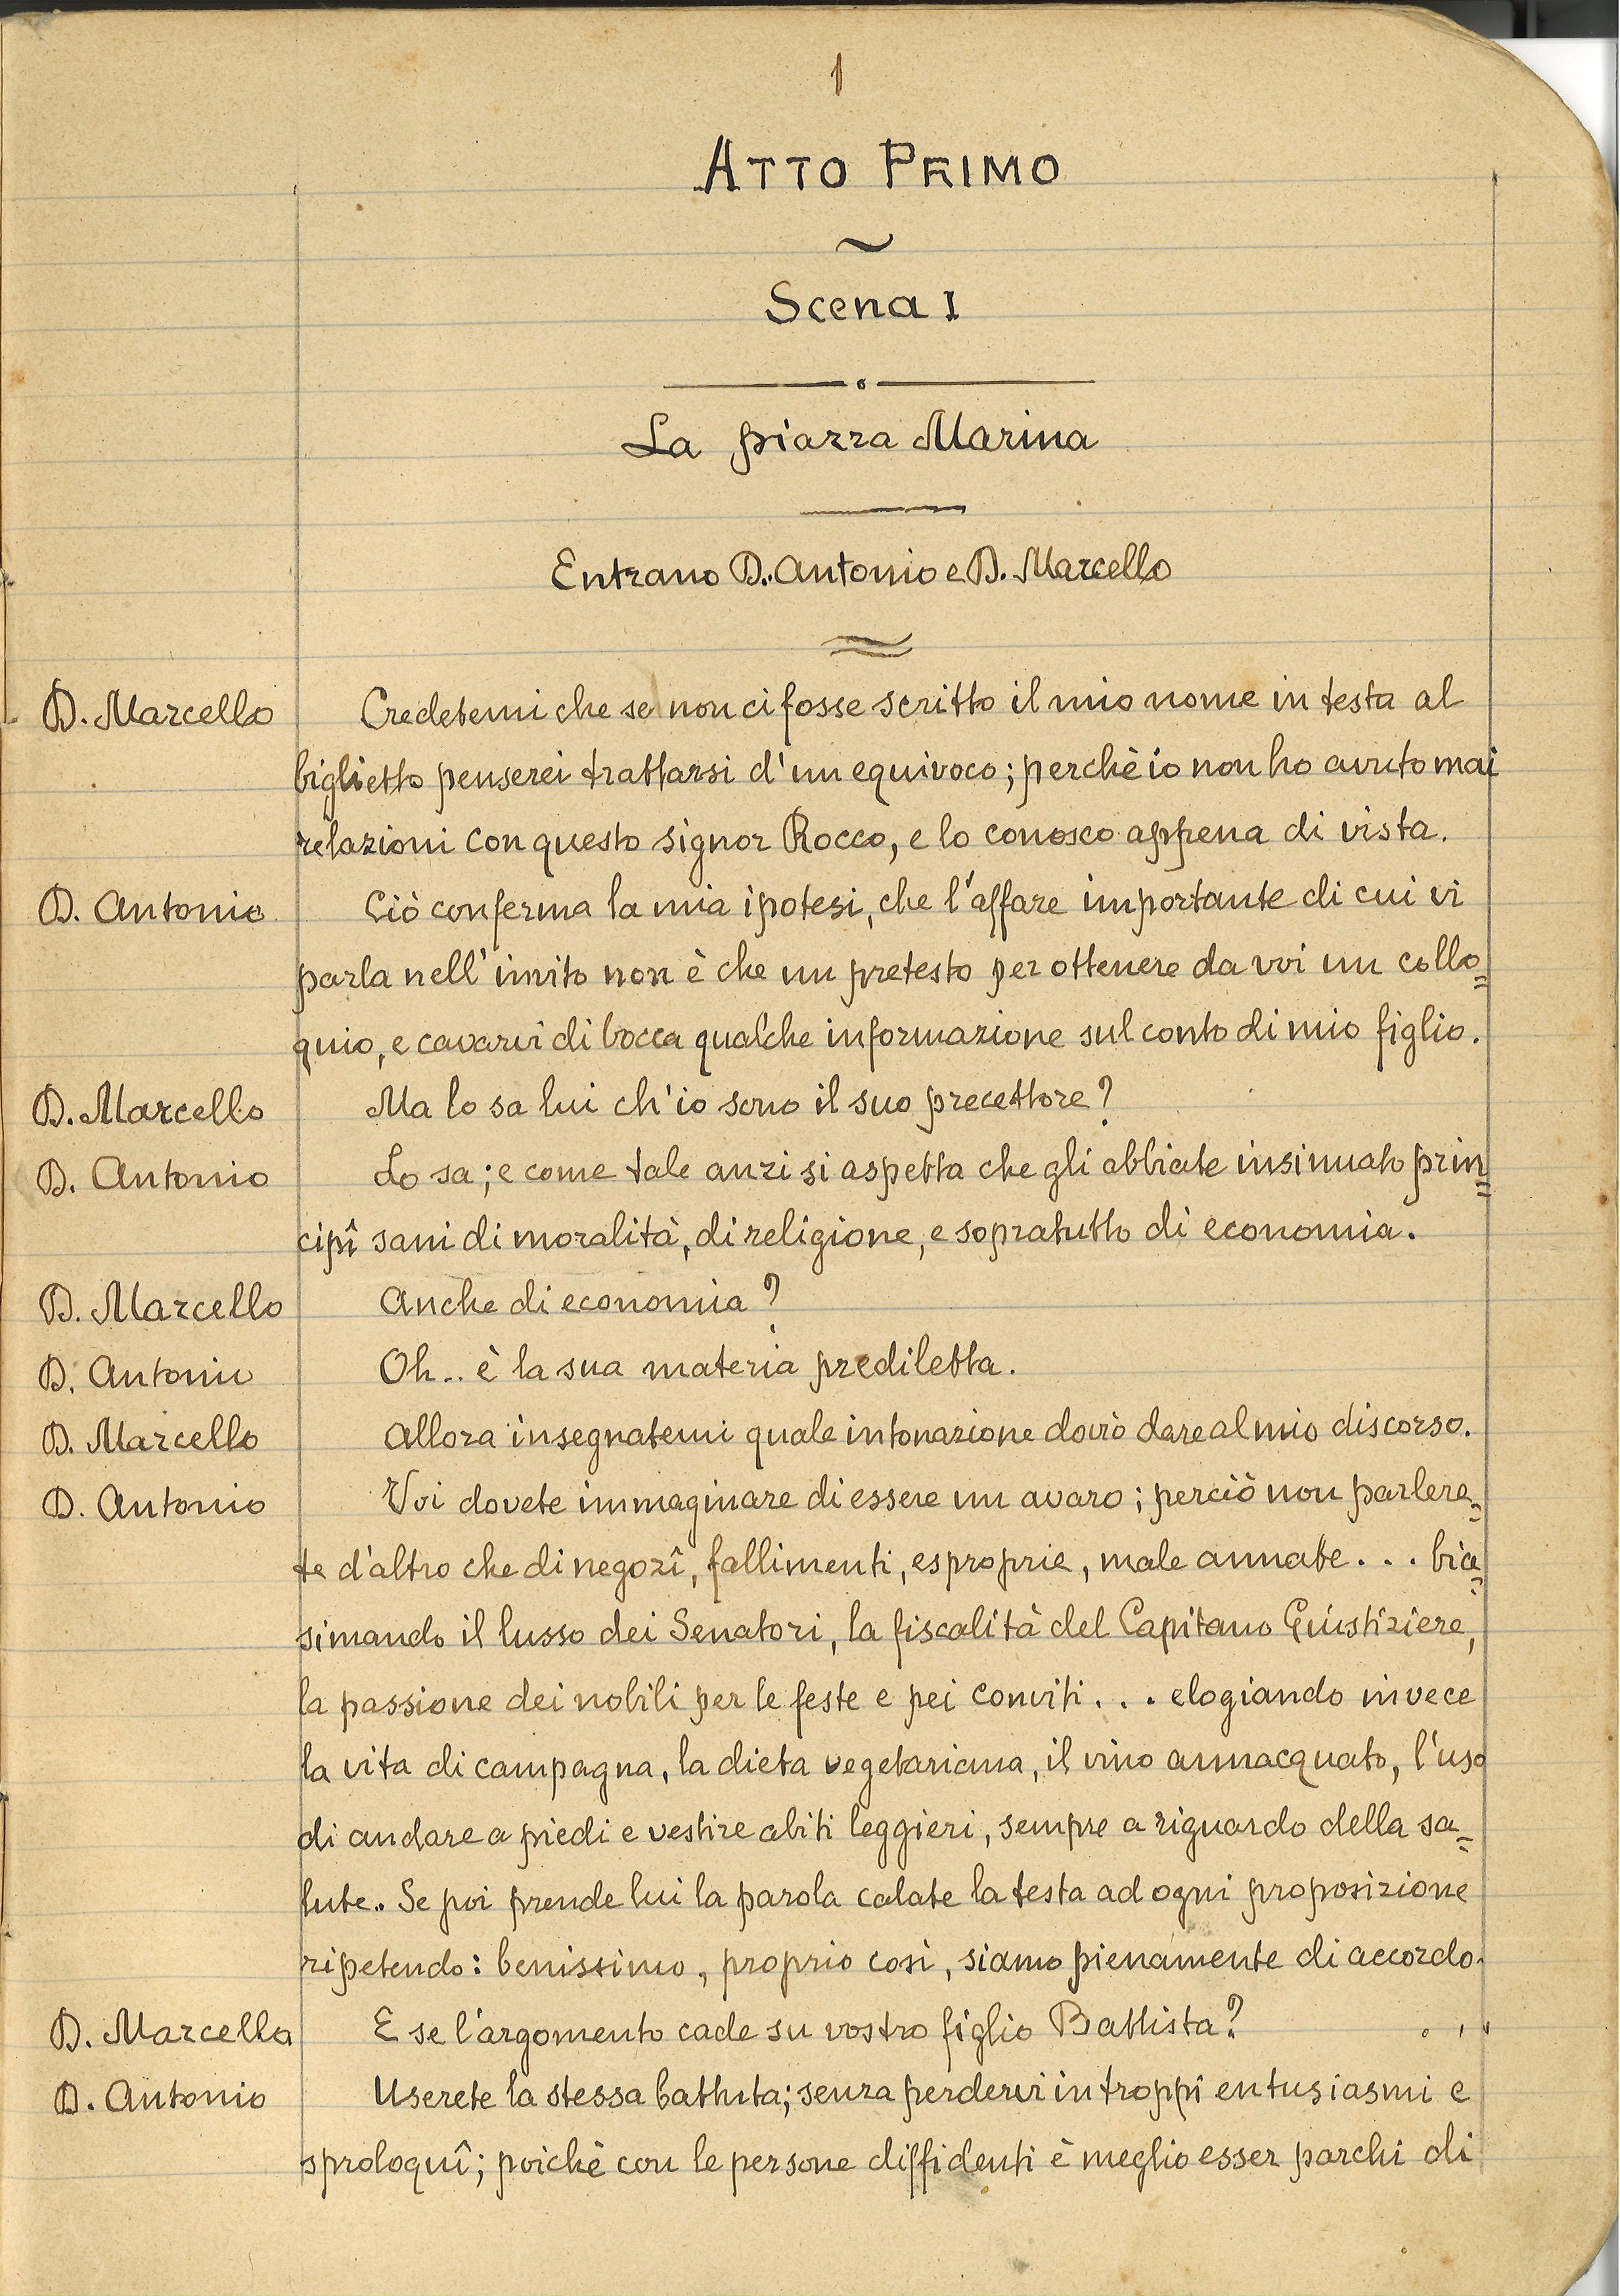 1
ATTO PRIMO
Scena I
La piazza Marina
Entrano D. Antonio e D. Marcello
D. Marcello Credetemi che se non ci fosse scritto il mio nome in testa al
biglietto penserei trattarsi d'un equivoco; perchè io non ho avuto mai
relazioni con questo signor Rocco, e lo conosco appena di vista.
D. Antonio Ciò conferma la mia ipotesi, che l'affare importante di cui vi
parla nell'invito non è che un pretesto per ottenere da voi un collo=
quio, e cavarvi di bocca qualche informazione sul conto di mio figlio.
D. Marcello Ma lo sa lui ch'io sono il suo precettore?
D. Antonio Lo sa; e come tale anzi si aspetta che gli abbiate insinuato prin=
cipî sani di moralità, di religione, e sopratutto di economia.
D. Marcello Anche di economia?
D. Antonio Oh.. è la sua materia prediletta.
D. Marcello Allora insegnatemi quale intonazione dovrò dare al mio discorso.
D. Antonio Voi dovete immaginare di essere un avaro; perciò non parlere=
te d'altro che di negozî, fallimenti, esproprie, male annate... bia=
simando il lusso dei Senatori, la fiscalità del Capitano Giustiziere,
la passione dei nobili per le feste e pei conviti... elogiando invece
la vita di campagna, la dieta vegetariana, il vino annacquato, l'uso
di andare a piedi e vestire abiti leggieri, sempre a riguardo della sa=
lute. Se poi prende lui la parola calate la testa ad ogni proposizione
ripetendo: benissimo, proprio così, siamo pienamente di accordo.
D. Marcello E se l'argomento cade su vostro figlio Battista?
D. Antonio Userete la stessa battuta; senza perdervi in troppî entusiasmi e
sproloquî; poichè con le persone diffidenti è meglio esser parchi di